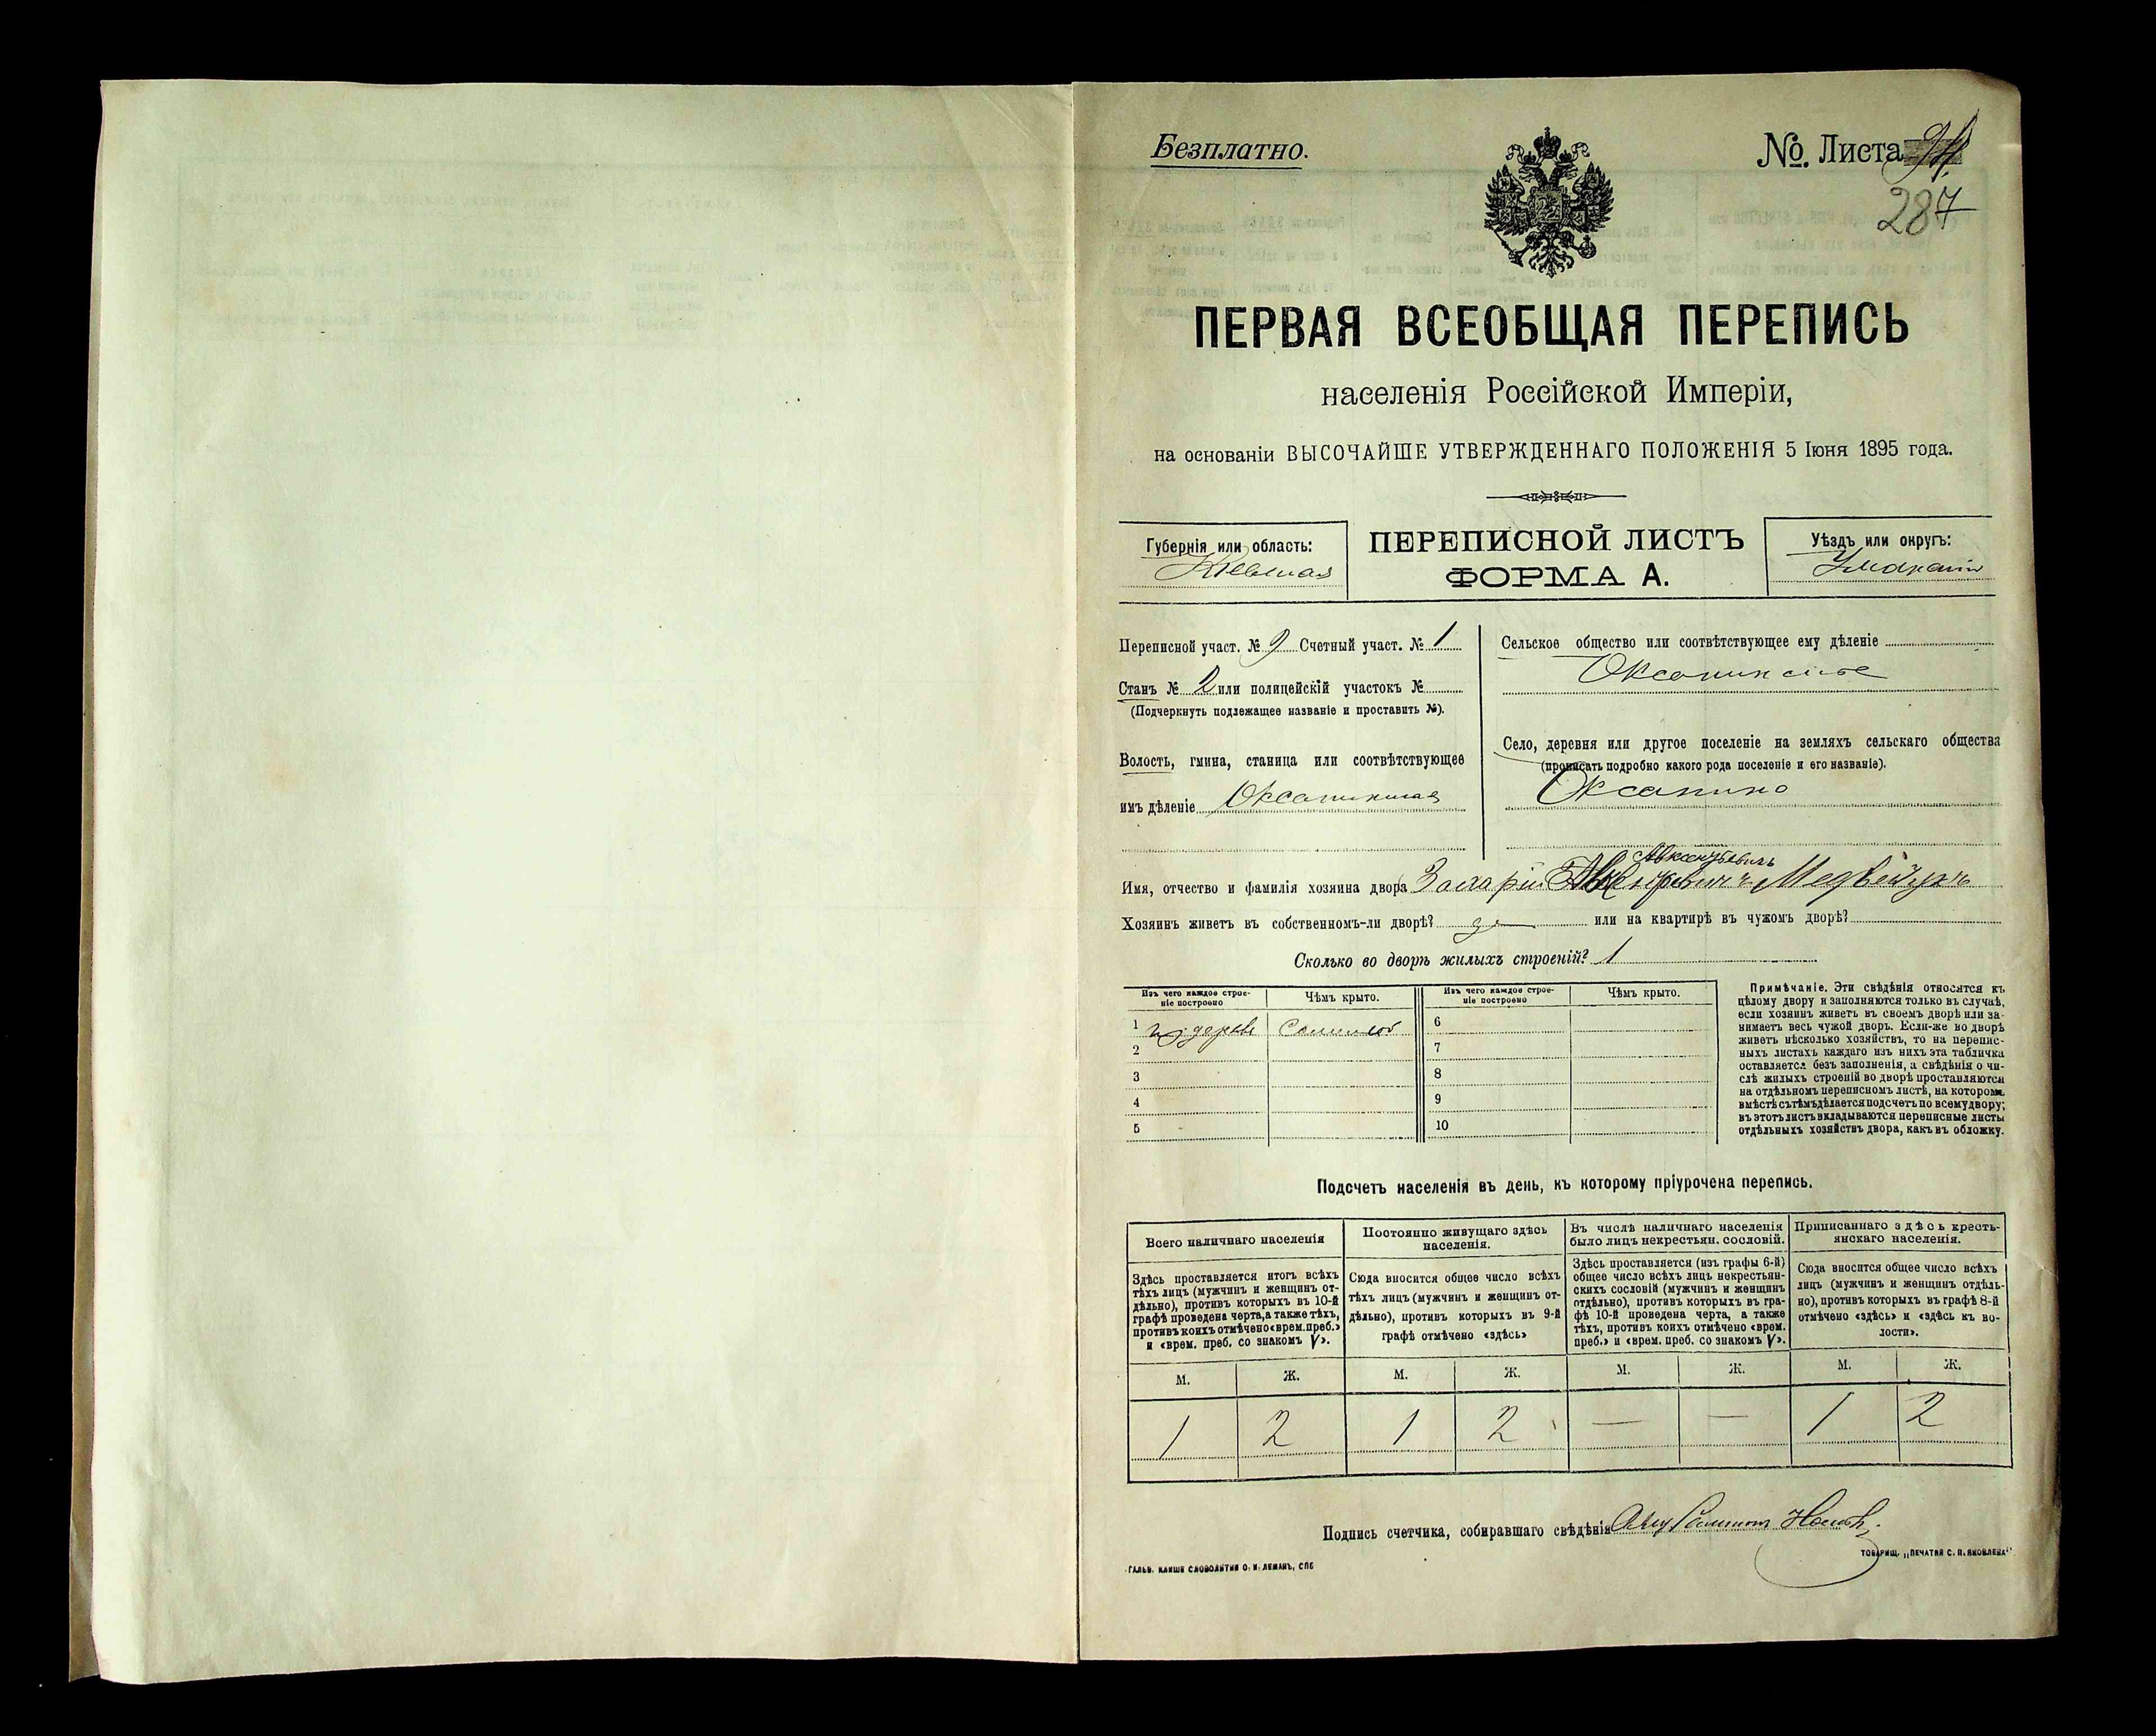 Безплатно.
№. Листа
287
ПЕРВАЯ ВСЕОБЩАЯ ПЕРЕПИСЬ
населенія Россійской Имперіи,
на основаніи ВЫСОЧАЙШЕ УТВЕРЖДЕННАГО ПОЛОЖЕНІЯ 5 Іюня 1895 года.
Губернія или область:
Кіевская
ПЕРЕПИСНОЙ ЛИСТЪ
ФОРМА А.
Уѣздъ или округъ:
Уманскій
Переписной участ. № 9 Счетный участ. № 1
Станъ № 2 или полицейскій участокъ №
(Подчеркнуть подлежащее названіе и проставить №).
Волость, гмина, станица или соотвѣтствующее
имъ дѣленіе Оксанинская
Сельское общество или соотвѣтствующее ему дѣленіе
Оксанинское
Село, деревня или другое поселеніе на земляхъ сельскаго общества
(прописать подробно какого рода поселеніе и его названіе).
Оксанино
Авксентьевичъ
Имя, отчество и фамилія хозяина двора Захарій Медвѣдукъ
Хозяинъ живетъ въ собственномъ-ли дворѣ? да или на квартирѣ въ чужомъ дворѣ?
Сколько во дворѣ жилыхъ строеній? 1
Изъ чего каждое строе-
ніе построено
Чѣмъ крыто.
Изъ чего каждое строе-
ніе построено
Чѣмъ крыто.
1 изъ дерева Соломой
2
3
4
5
6
7
8
9
10
Примѣчаніе. Эти свѣдѣнія относятся къ
цѣлому двору и заполняются только въ случаѣ,
если хозяинъ живетъ въ своемъ дворѣ или за-
нимаетъ весь чужой дворъ. Если-же во дворѣ
живетъ нѣсколько хозяйствъ, то на перепис-
ныхъ листахъ каждаго изъ нихъ эта табличка
оставляется безъ заполненія, а свѣдѣнія о чи-
слѣ жилыхъ строеній во дворѣ проставляются
на отдѣльномъ переписномъ листѣ, на которомъ
вмѣстѣ съ тѣмъ дѣлается подсчетъ по всему двору;
въ этотъ листъ вкладываются переписные листы
отдѣльныхъ хозяйствъ двора, какъ въ обложку.
Подсчетъ населенія въ день, къ которому пріурочена перепись.
Всего наличнаго населенія
Здѣсь проставляется итогъ всѣхъ
тѣхъ лицъ (мужчинъ и женщинъ от-
дѣльно), противъ которыхъ въ 10-й
графѣ проведена черта, а также тѣхъ,
противъ коихъ отмѣчено «врем. преб.»
и «врем. преб. со знакомъ V».
Постоянно живущаго здѣсь
населенія.
Сюда вносится общее число всѣхъ
тѣхъ лицъ (мужчинъ и женщинъ от-
дѣльно), противъ которыхъ въ 9-й
графѣ отмѣчено «здѣсь»
Въ числѣ наличнаго населенія
было лицъ некрестьян. сословій.
Здѣсь проставляется (изъ графы 6-й)
общее число всѣхъ лицъ некрестьян-
скихъ сословій (мужчинъ и женщинъ
отдѣльно), противъ которыхъ въ гра-
фѣ 10-й проведена черта, а также
тѣхъ, противъ коихъ отмѣчено «врем.
преб.» и «врем. преб. со знакомъ V».
Приписаннаго здѣсь кресть-
янскаго населенія.
Сюда вносится общее число всѣхъ
лицъ (мужчинъ и женщинъ отдѣль-
но), противъ которыхъ въ графѣ 8-й
отмѣчено «здѣсь» и «здѣсь къ во-
лости».
М. Ж. М. Ж. М. Ж. М. Ж.
1 2 1 2 — — 1 2
Подпись счетчика, собиравшаго свѣдѣнія
ГАЛЬВ. КЛИШЕ СЛОВОЛИТНИ О. И. ЛЕМАНЪ, СПБ
ТОВАРИЩ. „ПЕЧАТНЯ С. П. ЯКОВЛЕВА“